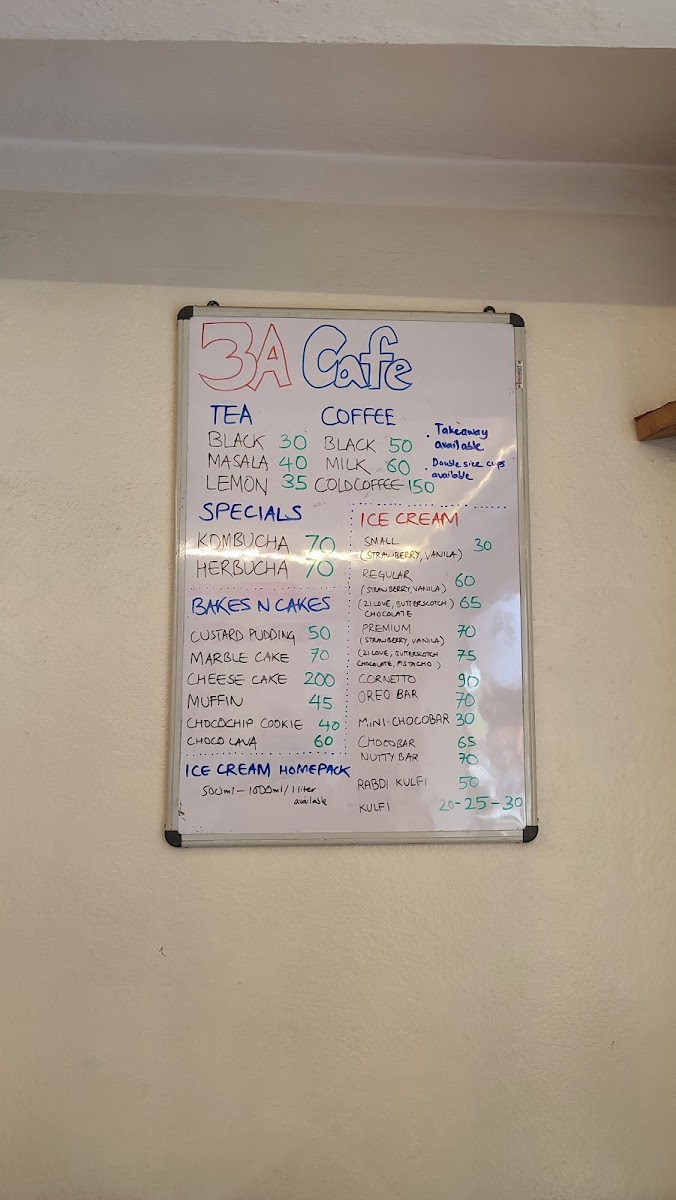 3A Cafe
TEA
BLACK 30
MASALA 40
LEMON 35
COFFEE
BLACK 50
MILK 60
COLD COFFEE 150
• Takeaway
available
• Double size cups
available
SPECIALS
KOMBUCHA 70
HERBUCHA 70
BAKES N CAKES
CUSTARD PUDDING 50
MARBLE CAKE 70
CHEESE CAKE 200
MUFFIN 45
CHOCOCHIP COOKIE 40
CHOCO LAVA 60
ICE CREAM HOMEPACK
500ml - 1000ml/1 liter
available
ICE CREAM
SMALL
(STRAWBERRY, VANILA) 30
REGULAR
(STRAWBERRY, VANILA) 60
(2I LOVE, BUTTERSCOTCH) 65
CHOCOLATE
PREMIUM 70
(STRAWBERRY, VANILA)
(2I LOVE, BUTTERSCOTCH 75
CHOCOLATE, PISTACHO)
CORNETTO 90
OREO BAR 70
MINI-CHOCOBAR 30
CHOCOBAR 65
NUTTY BAR 70
RABDI KULFI 50
KULFI 20-25-30